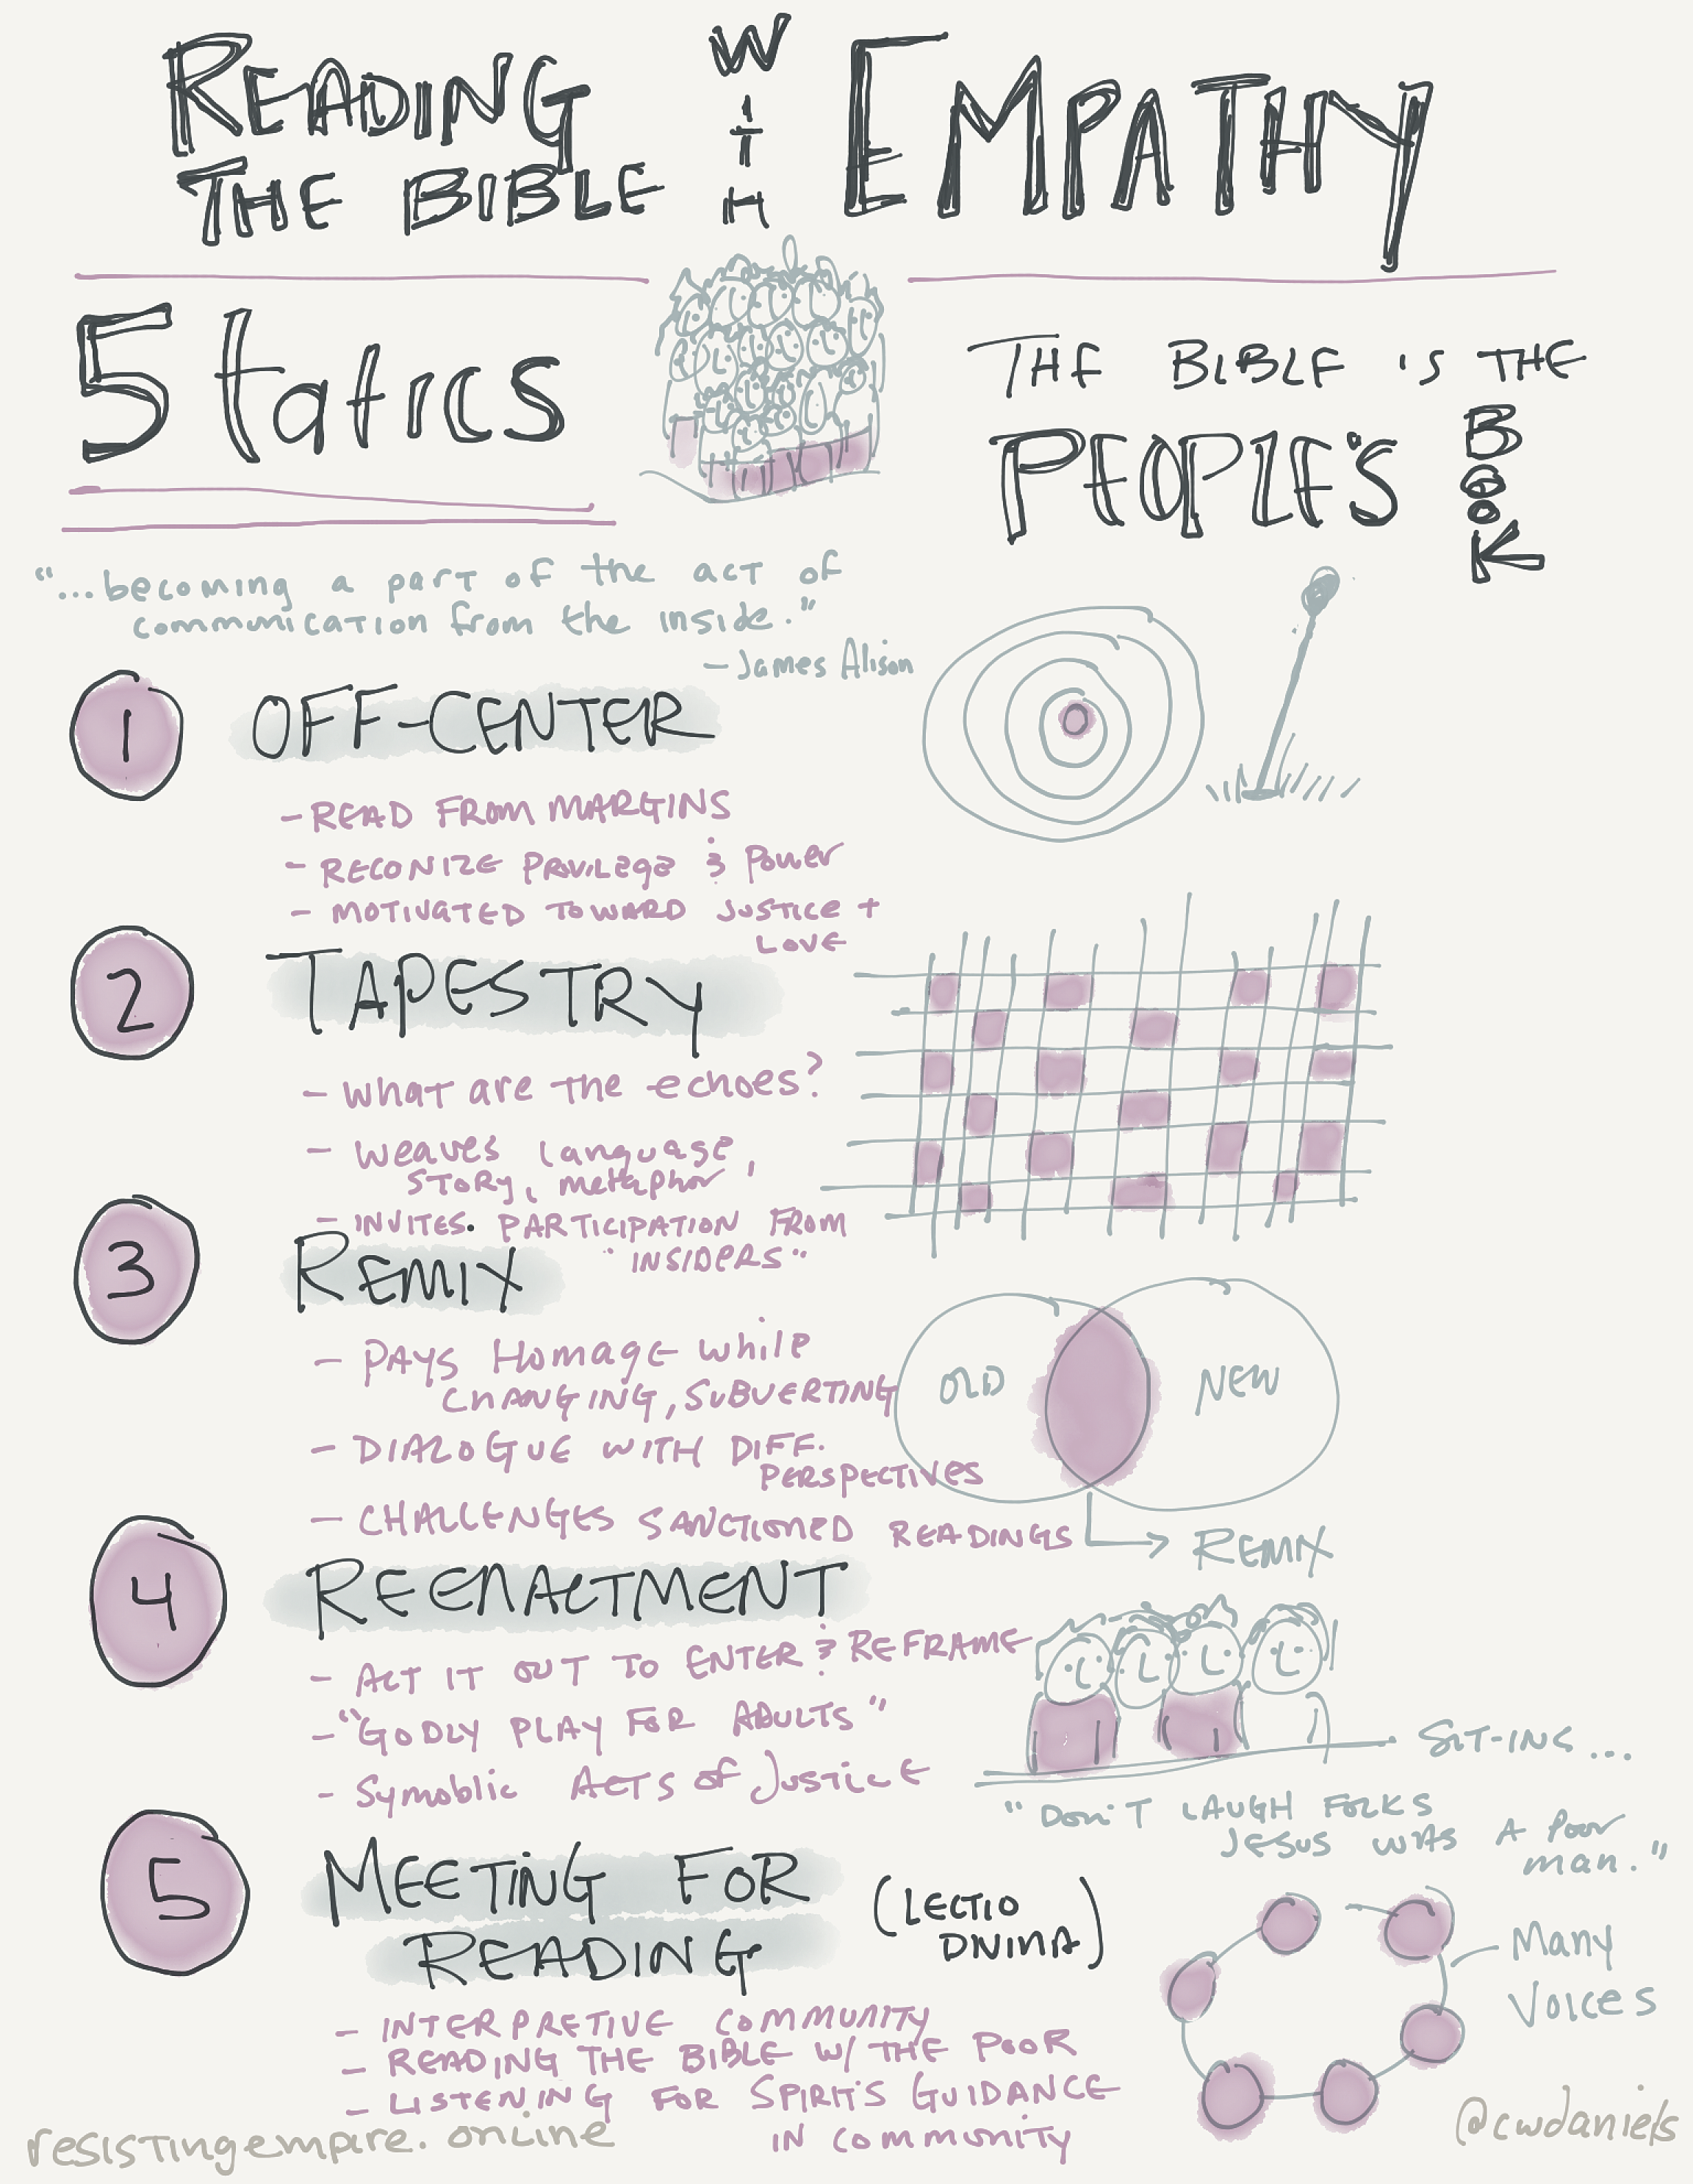 READING
THE BIBLE
WITH
EMPATHY
5 tatics
THE BIBLE IS THE
PEOPLE'S
BOOK
"...becoming a part of the act of
communication from the inside."
- James Alison
1 OFF-CENTER
- READ FROM MARGINS
- RECONIZE PRIVILEGE & POWER
- MOTIVATED TOWARD JUSTICE +
LOVE
2 TAPESTRY
- WHAT ARE THE ECHOES?
- WEAVES LANGUAGE,
STORY, METAPHOR,
- INVITES. PARTICIPATION FROM
"INSIDERS"
3 REMIX
- PAYS HOMAGE WHILE
CHANGING, SUBVERTING
- DIALOGUE WITH DIFF.
PERSPECTIVES
- CHALLENGES SANCTIONED READINGS
OLD
NEW
REMIX
4 REENACTMENT
- ACT IT OUT TO ENTER & REFRAME
- "GODLY PLAY FOR ADULTS"
- Symoblic ACTS of JUSTICE
SIT-INS...
"DON'T LAUGH FOLKS
JESUS WAS A POOR
MAN."
5 MEETING FOR
READING
(LECTIO
DIVINA)
- INTERPRETIVE COMMUNITY
- READING THE BIBLE W/ THE POOR
- LISTENING FOR SPIRIT'S GUIDANCE
IN COMMUNITY
Many
Voices
resistingempire.online
@cwdaniels